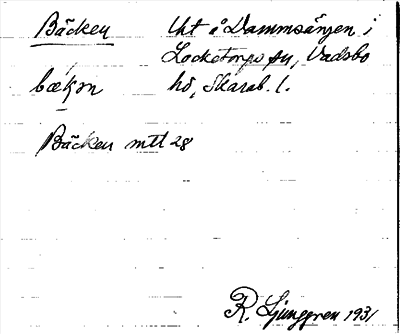 Bäcken Ut å Dammsängen i
Locketorps sn, Vadsbo
bækən hd, Skarab. l.
Bäcken mtl 28
R. Ljunggren 1931